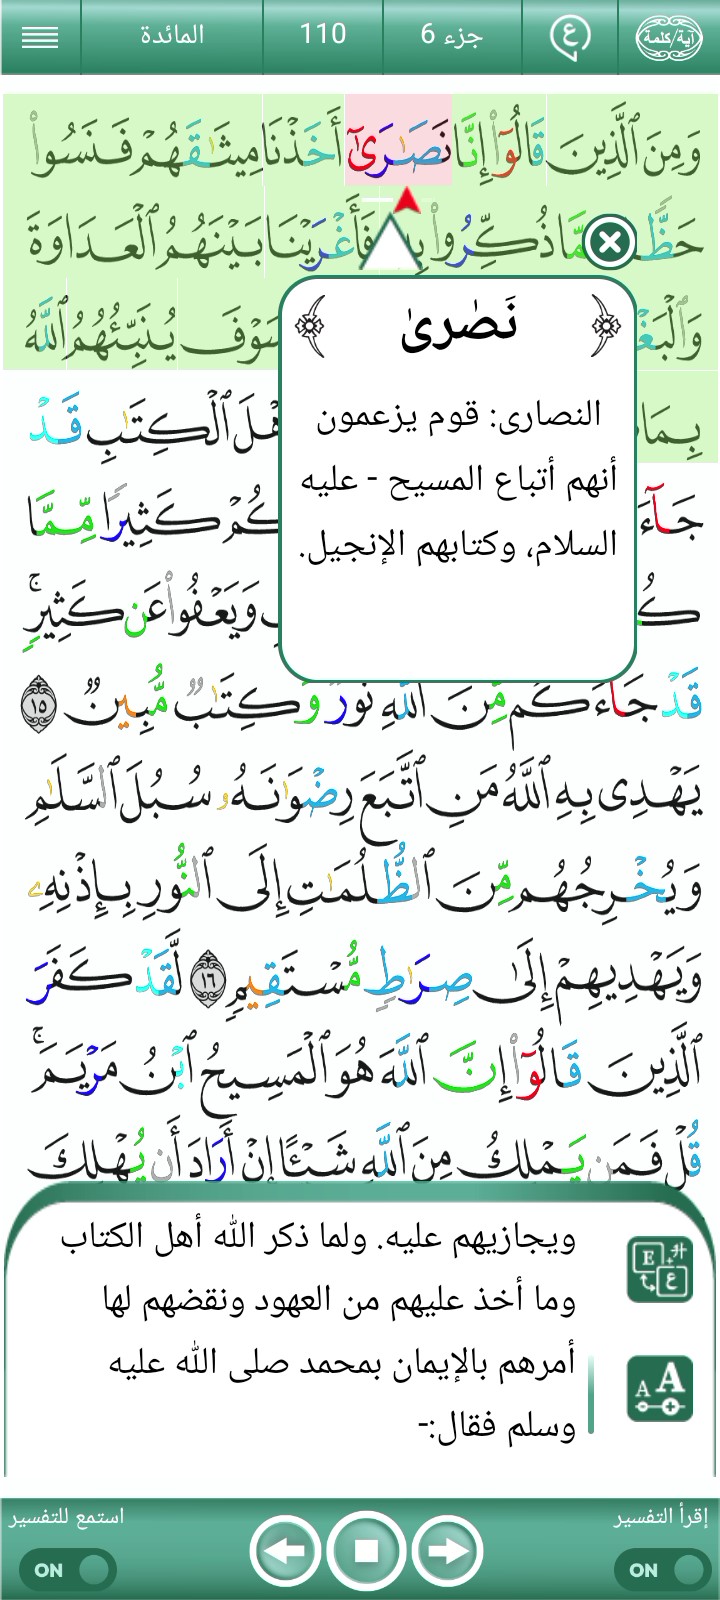 آية/كلمة
ع
جزء 6
110
المائدة
وَمِنَ ٱلَّذِينَ قَالُوٓا۟ إِنَّا نَصَـٰرَىٰٓ أَخَذْنَا مِيثَـٰقَهُمْ فَنَسُوا۟
حَظًّا مِّمَّا ذُكِّرُوا۟ بِهِۦ فَأَغْرَيْنَا بَيْنَهُمُ ٱلْعَدَاوَةَ
وَٱلْبَغْ سَوْفَ يُنَبِّئُهُمُ ٱللَّهُ
بِمَا هْلَ ٱلْكِتَـٰبِ قَدْ
جَآءَ كُمْ كَثِيرًا مِّمَّا
كُ وَيَعْفُوا۟ عَن كَثِيرٍ ۚ
قَدْ جَآءَكُم مِّنَ ٱللَّهِ نُورٌ وَكِتَـٰبٌ مُّبِينٌ ١٥
يَهْدِى بِهِ ٱللَّهُ مَنِ ٱتَّبَعَ رِضْوَٰنَهُۥ سُبُلَ ٱلسَّلَـٰمِ
وَيُخْرِجُهُم مِّنَ ٱلظُّلُمَـٰتِ إِلَى ٱلنُّورِ بِإِذْنِهِۦ
وَيَهْدِيهِمْ إِلَىٰ صِرَٰطٍ مُّسْتَقِيمٍ ١٦ لَّقَدْ كَفَرَ
ٱلَّذِينَ قَالُوٓا۟ إِنَّ ٱللَّهَ هُوَ ٱلْمَسِيحُ ٱبْنُ مَرْيَمَ ۚ
قُلْ فَمَن يَمْلِكُ مِنَ ٱللَّهِ شَيْـًٔا إِنْ أَرَادَ أَن يُهْلِكَ
نَصَٰرىٰ
النصارى: قوم يزعمون
أنهم أتباع المسيح - عليه
السلام، وكتابهم الإنجيل.
ويجازيهم عليه. ولما ذكر الله أهل الكتاب
وما أخذ عليهم من العهود ونقضهم لها
أمرهم بالإيمان بمحمد صلى الله عليه
وسلم فقال:-
إقرأ التفسير
استمع للتفسير
ON
ON